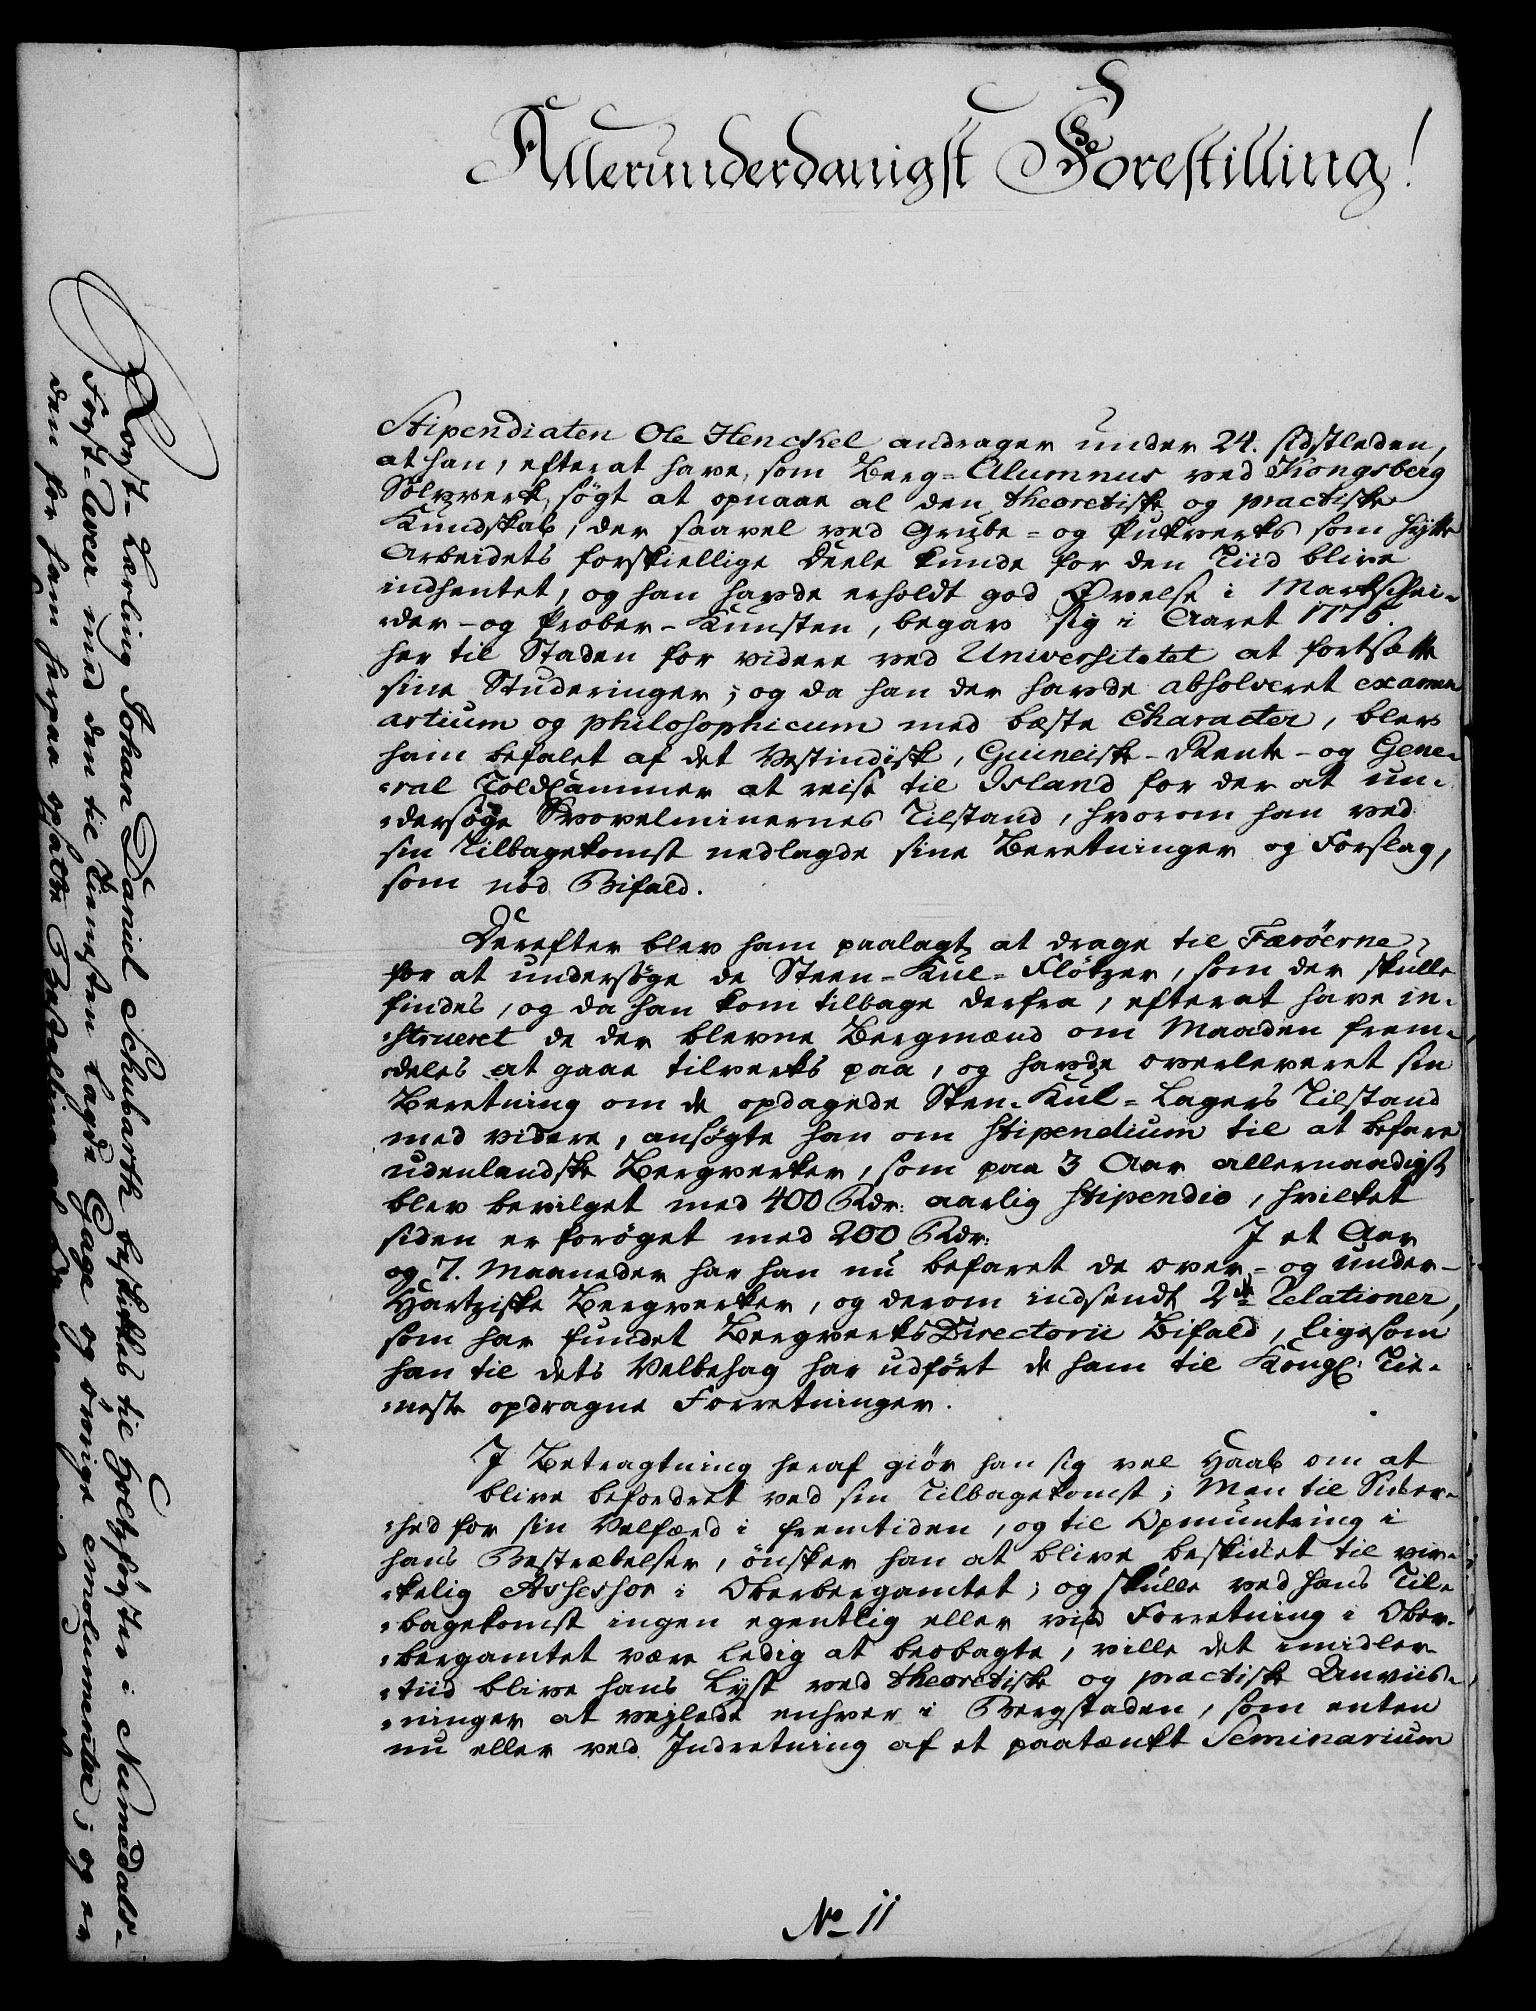 Allerunderdanigst Forestilling!
Stipendiaten Ole Henckel andrager under 24. sidstleden,
at han, efterat have, som Berg=Alumnus ved Kongsberg
Sølvverk, søgt at opnaae al den theoretiske og practiske
Kundskab, der saavel ved Grube= og Pukverks som Hytte
Arbeidets forskiellige Deele kunde for den Tiid blive
indhentet, og han havde erholdt god Øvelse i Markschei=
=der- og Prober-Kunsten, begav sig i Aaret 1775.
her til Staden for videre ved Universitetet at fortsætte
sine Studeringer; og da han der havde absolveret examen
artium og philosophicum med bæste Character, blev
ham befalet af det Vestindisk, Guineisk- Rente- og Gene=
=ral Toldkammer at reise til Island for der at un=
=dersøge Svovelminernes Tilstand, hvorom han ved
sin Tilbagekomst nedlagde sine Beretninger og Forslag,
som nød Bifald.
Derefter blev ham paalagt at drage til Færöerne
for at undersøge de Steen-Kul-Flötzer, som der skulle
findes, og da han kom tilbage derfra, efterat have in=
=strueret de der blevne Bergmænd om Maaden frem=
=deles at gaae tilverks paa, og havde overleveret sin
Beretning om de opdagede Sten-Kul=Lagers Tilstand
med videre, ansøgte han om Stipendium til at befare
udenlandske Bergverker, som paa 3 Aar allernaadigst
blev bevilget med 400 Rdr: aarlig Stipendio, hvilket
siden er forøget med 200 Rdr: I et Aar
og 7. Maaneder har han nu befaret de over= og under-
Hartziske Bergverker, og derom indsendt 2de Relationer,
som har fundet Bergverks Directorii Bifald, ligesom
han til dets Velbehag har udført de ham til Kongl: Tie=
=neste opdragne Forretninger.
I Betragtning heraf giör han sig vel Haab om at
blive befordret ved sin Tilbagekomst; Men til Sikker=
=hed for sin Velfærd i fremtiden, og til Opmuntring i
hans Bestræbelser, ønsker han at blive beskikket til vir=
=kelig Assessor i Oberbergamtet; og skulle ved hans Til=
=bagekomst ingen egentlig eller viss Forretning i Ober=
=bergamtet være ledig at beobagte, ville det imidler=
=tiid blive hans Lyst ved theoretiske og practiske Anviis=
=ninger at vejlede enhver i Bergstaden, som enten
nu eller ved Indretning af et paatænkt Seminarium
No 11
Forst-Lærling Johan Daniel Schubarth beskikkes til Holtzförster i Numedals-
Forst- med den til Tienesten lagde Gage og övrige emolumenter; og er
den for ham herpaa opsatte Bestalling